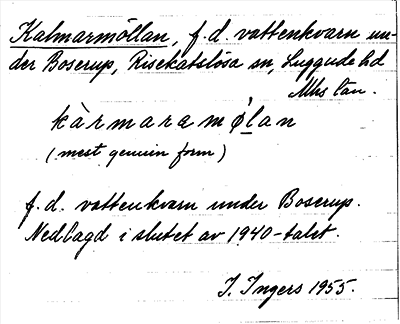 Kalmarmöllan, f.d. vattenkvarn un-
der Boserup, Risekatslösa sn, Luggude hd
Mhs län.
kàrmaramø̀lan
(mest genuin form)
f.d. vattenkvarn under Boserup.
Nedlagd i slutet av 1940-talet.
I. Ingers 1955.